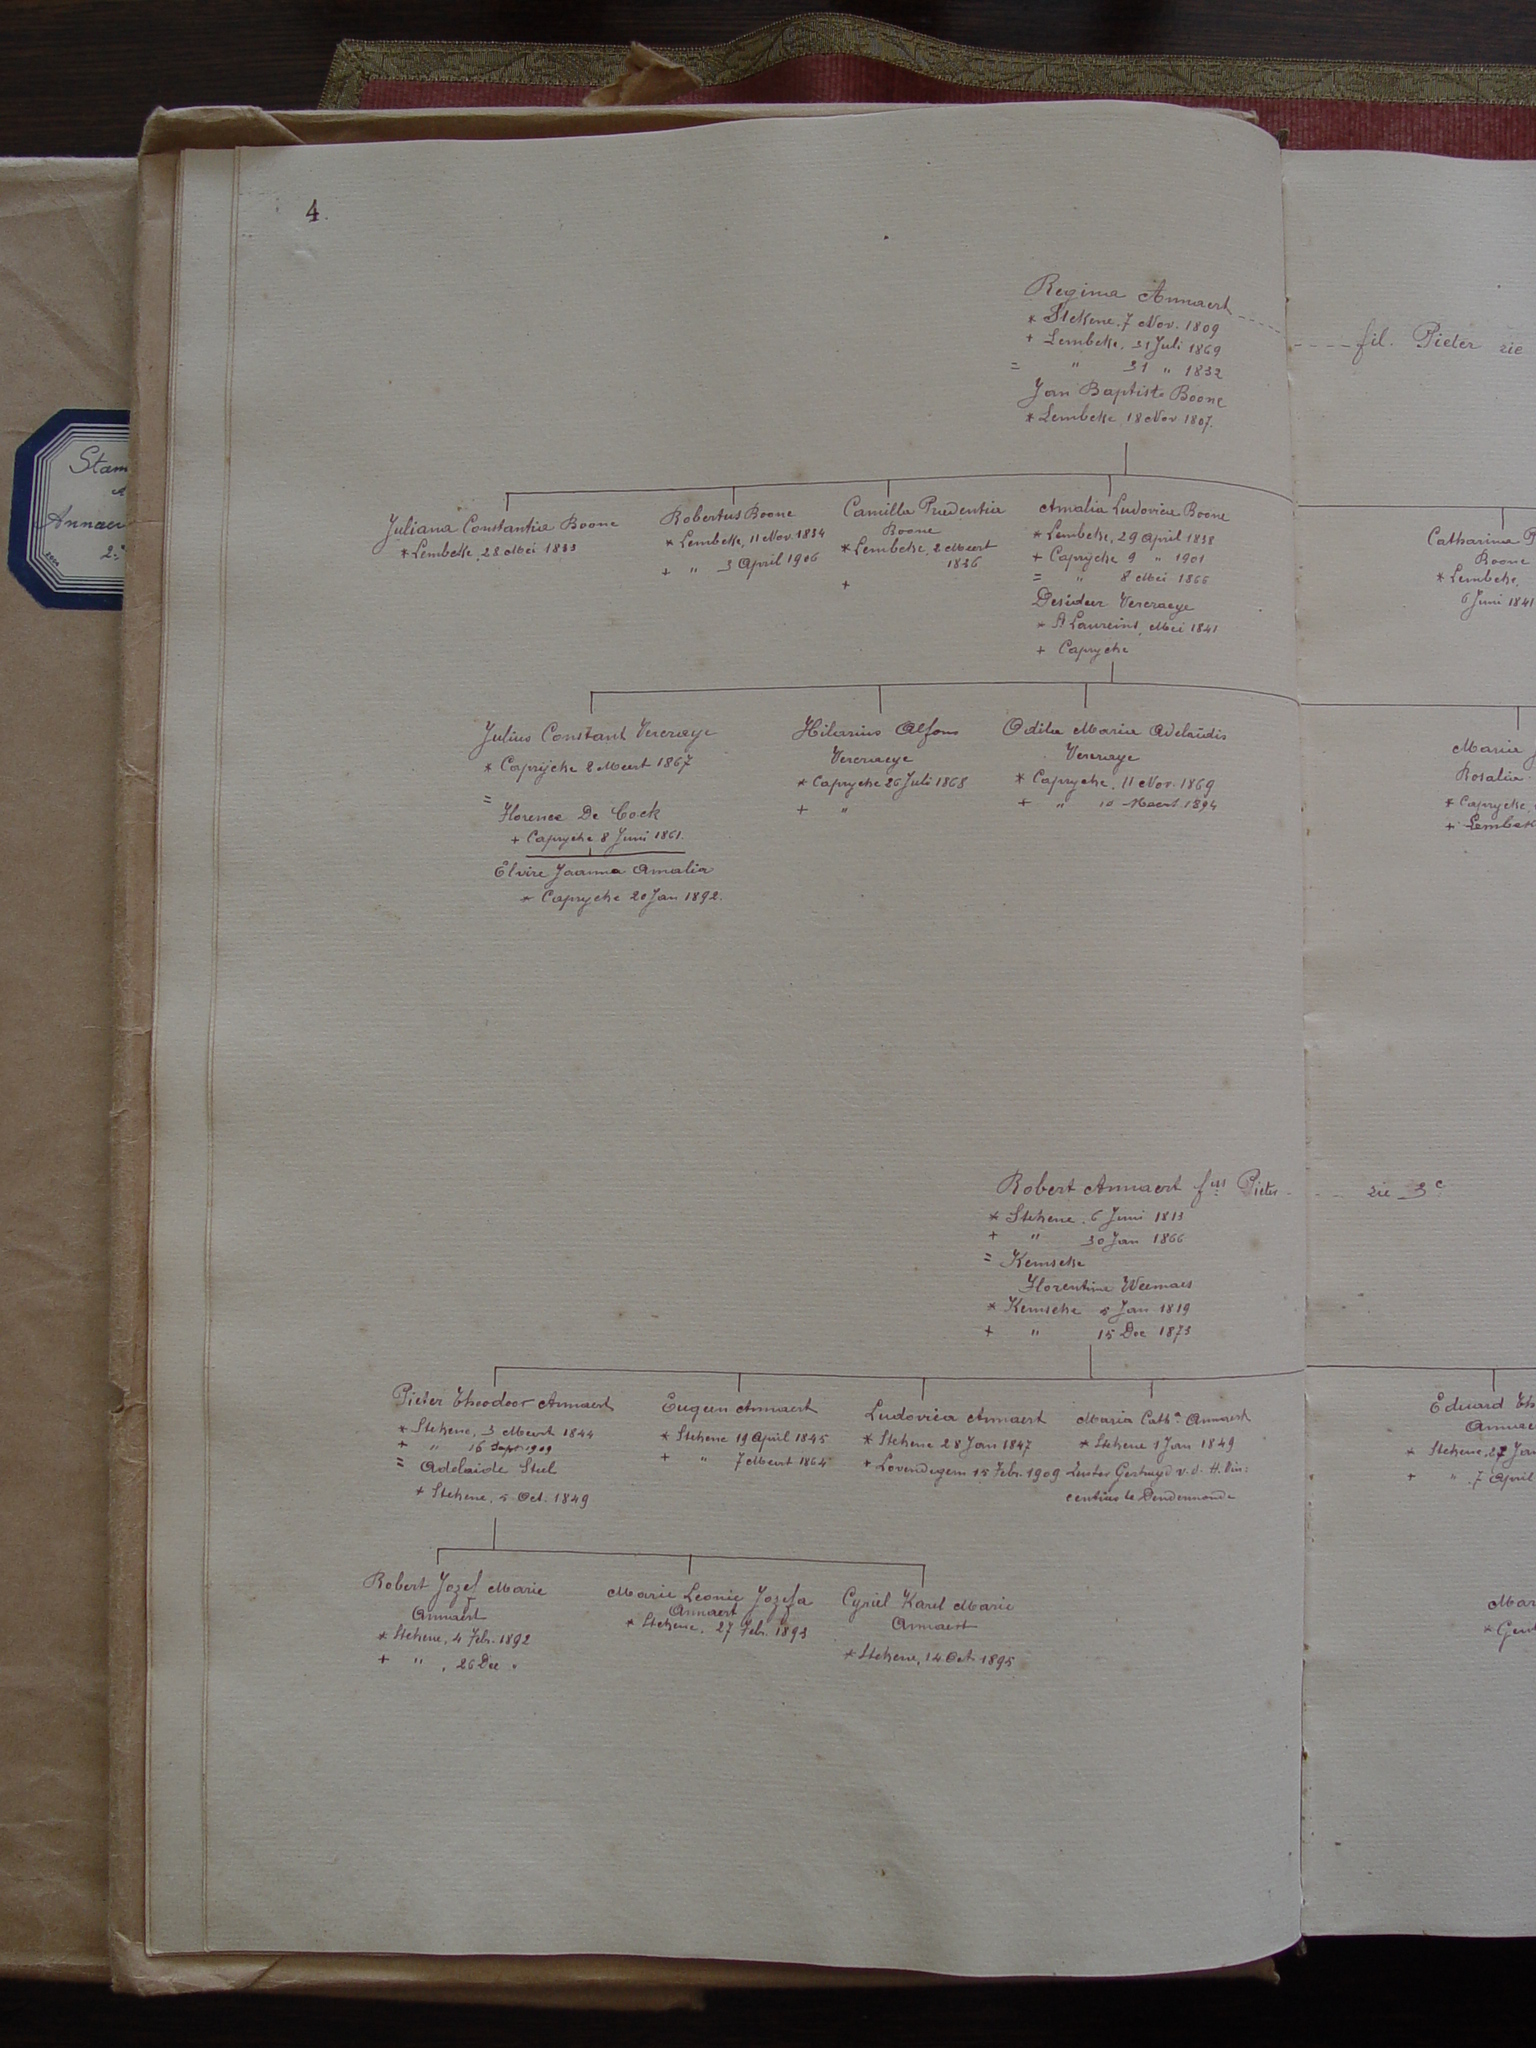 4.
Regina Annaert
* Stekene, 7 Nov. 1809
+ Lembeke, 31 Juli 1869
= " 31 " 1832
Jan Baptiste Boone
* Lembeke, 18 Nov 1807.
fil. Pieter zie
Juliana Constantia Boone
* Lembeke, 28 Mei 1833
Robertus Boone
* Lembeke, 11 Nov. 1834
+ " 3 April 1906
Camilla Prudentia
Boone
* Lembeke, 2 Meert
1836
+
Amalia Ludovica Boone
* Lembeke, 29 April 1838
+ Caprycke 9 " 1901
= " 8 Mei 1866
Desideer Vercraeye
* St Laureins, Mei 1841
+ Caprycke
Catharina P
Boone
* Lembeke,
6 Juni 1841
Julius Constant Vercraeye
* Caprijcke 8 Meert 1867
=
Florence De Cock
+ Caprycke 8 Juni 1861.
Elvire Joanna Amalia
* Caprycke 20 Jan 1892.
Hilarius Alfons
Vercraeye
* Caprycke 26 Juli 1868
+ "
Odilia Maria Adelaïdis
Vercraeye
* Caprycke, 11 Nov. 1869
+ " 10 Maert 1894
Maria J
Rosalia
* Caprycke,
+ Lembek
Robert Annaert fius Pieter
zie 3c
* Stekene, 6 Juni 1813
+ " 30 Jan 1866
= Kemseke
Florentina Weemaes
* Kemseke 5 Jan 1819
+ " 15 Dec 1873
Pieter Theodoor Annaert
* Stekene, 3 Meert 1844
+ " 16 Sept 1909
= Adelaïde Stul
+ Stekene, 5 Oct. 1849
Eugeen Annaert
* Stekene 19 April 1845
+ " 7 Meert 1864
Ludovica Annaert
* Stekene 28 Jan 1847
+ Lovendegem 15 Febr. 1909
Maria Catha Annaert
* Stekene 1 Jan 1849
Zuster Gertruyd v. d. H. Vin:
centius te Dendermonde
Eduard Th
Annae
* Stekene, 27 Jan
+ " 7 April
Robert Jozef Marie
Annaert
* Stekene, 4 Febr. 1892
+ " , 26 Dec "
Marie Leonie Jozefa
Annaert
* Stekene, 27 Febr. 1893
Cyriel Karel Marie
Annaert
* Stekene, 14 Oct. 1895
Mar
* Gent
Stam
Annaer